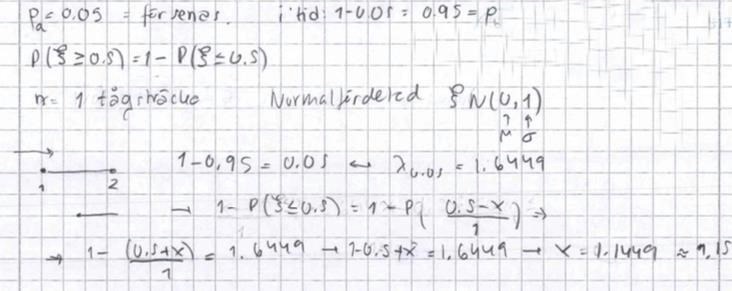 Pₐ = 0.05 = försenas. i tid: 1-0.05 = 0.95 = P
P(ξ ≥ 0.5) = 1 - P(ξ ≤ 0.5)
n = 1 tågsträcka Normalfördelad ξ N(0,1)
↑ ↑
μ σ
1-0,95 = 0.05 ↔ λ₀.₀₅ = 1.6449
1 2
→ 1 - P(ξ ≤ 0.5) = 1 - P( (0.5-x)/1 ) ⇒
⇒ 1 - (0.5+x)/1 = 1.6449 → 1-0.5+x = 1.6449 → x = 1.1449 ≈ 1,15